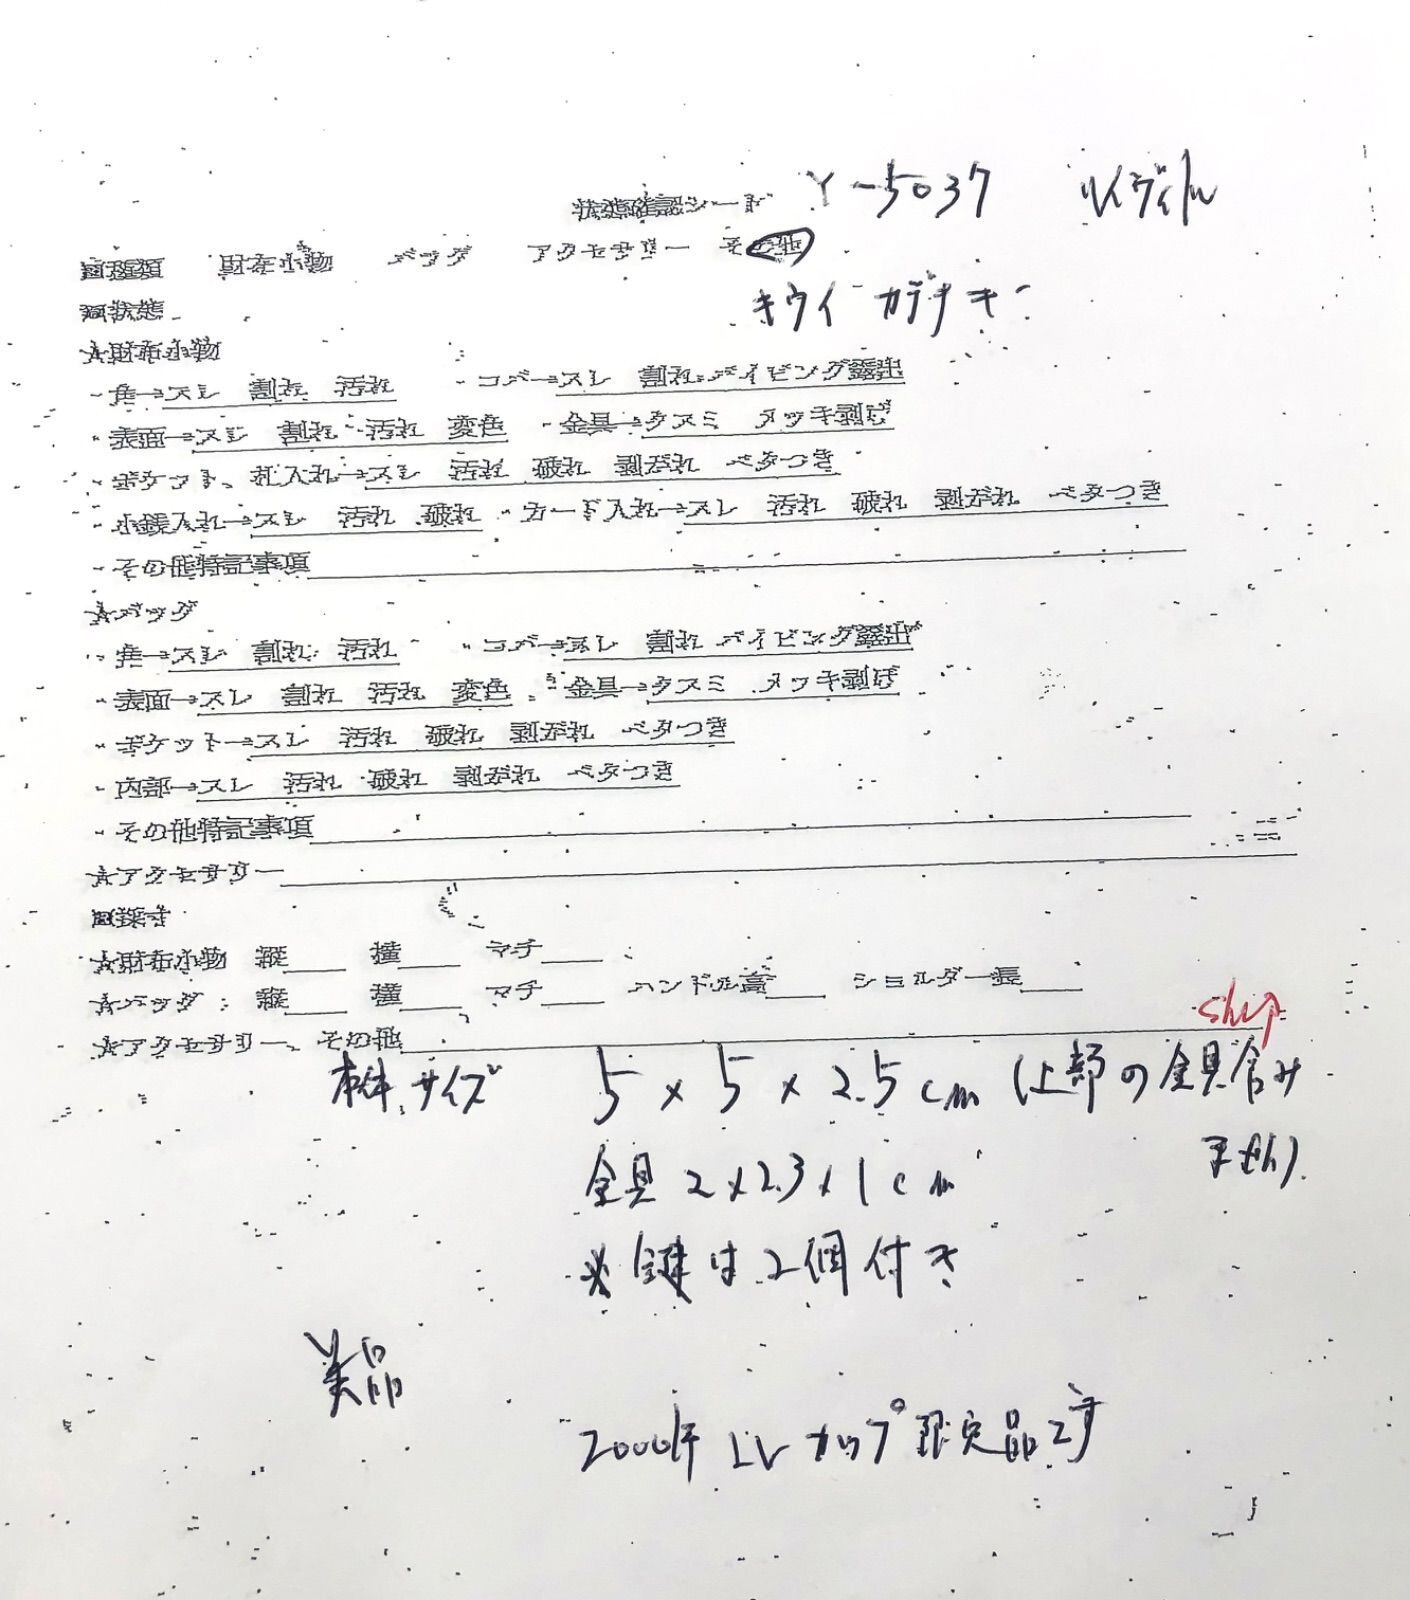 状態確認シート Y-5037 ルイヴィトン
□種類 財布小物 バッグ アクセサリー その他
□状態 キウイ カデナキー
☆財布小物
・角→スレ 割れ 汚れ ・コバ→スレ 割れ パイピング露出
・表面→スレ 割れ 汚れ 変色 ・金具→クスミ メッキ剥げ
・ポケット、札入れ→スレ 汚れ 破れ 剥がれ ベタつき
・小銭入れ→スレ 汚れ 破れ ・カード入れ→スレ 汚れ 破れ 剥がれ ベタつき
・その他特記事項
☆バッグ
・角→スレ 割れ 汚れ ・コバ→スレ 割れ パイピング露出
・表面→スレ 割れ 汚れ 変色 ・金具→クスミ メッキ剥げ
・ポケット→スレ 汚れ 破れ 剥がれ ベタつき
・内部→スレ 汚れ 破れ 剥がれ ベタつき
・その他特記事項
☆アクセサリー
□採寸
☆財布小物 縦 横 マチ
☆バッグ:縦 横 マチ ハンドル高 ショルダー長
☆アクセサリー、その他
本体サイズ 5×5×2.5cm (上部の金具含み
ません)
金具 2×2.3×1cm
※鍵は2個付き
美品
2000年 LV カップ限定品です